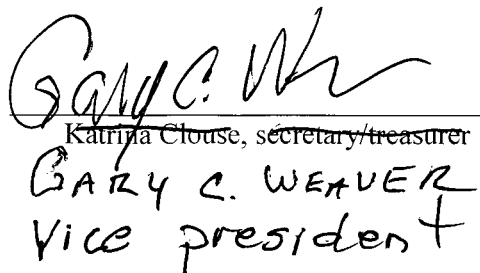 Gary C. W
Katrina Clouse, secretary/treasurer
GARY C. WEAVER
Vice president